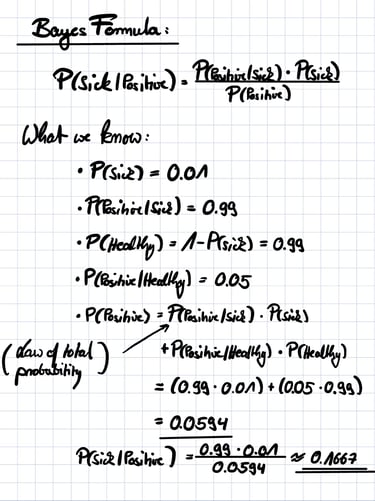 Bayes Formula:
P(Sick/Positive) = P(Positive/Sick) · P(Sick) / P(Positive)
What we know:
· P(Sick) = 0.01
· P(Positive/Sick) = 0.99
· P(Healthy) = 1-P(Sick) = 0.99
· P(Positive/Healthy) = 0.05
· P(Positive) = P(Positive/Sick) · P(Sick)
(Law of total probability)
+ P(Positive/Healthy) · P(Healthy)
= (0.99 · 0.01) + (0.05 · 0.99)
= 0.0594
P(Sick/Positive) = 0.99 · 0.01 / 0.0594 ≈ 0.1667